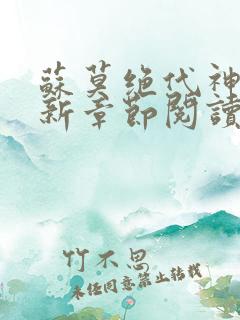 蘇莫絶代神
新章節閱讀
竹不思
未经同意禁止转载